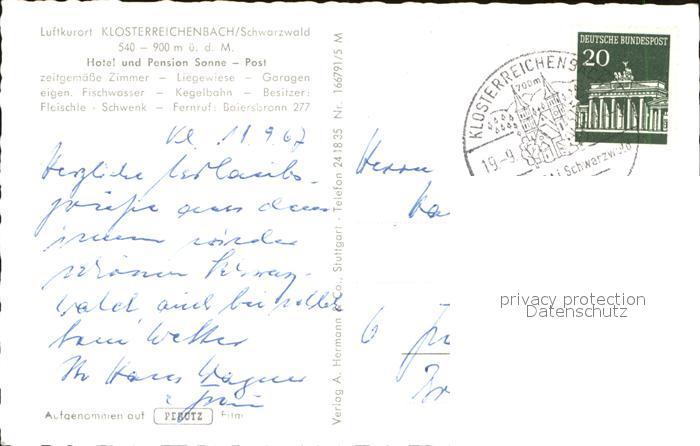 Luftkurort KLOSTERREICHENBACH/Schwarzwald
540 – 900 m ü. d. M.
Hotel und Pension Sonne – Post
zeitgemäße Zimmer – Liegewiese – Garagen
eigen. Fischwasser – Kegelbahn – Besitzer:
Fleischle - Schwenk – Fernruf: Baiersbronn 277
Kl. 11.9.67
Herzliche Urlaubs-
grüße aus dem
immer wieder
schönen Schwarz-
wald, auch bei
Wetter
Ihr Hans Wagner
Frau
Aufgenommen auf PERUTZ Film
Verlag A. Hermann & Co., Stuttgart - Telefon 241835 Nr. 166791/5 M
Herrn
6
KLOSTERREICHENB
700m
19.-9.
i Schwarzwald
DEUTSCHE BUNDESPOST
20
privacy protection
Datenschutz